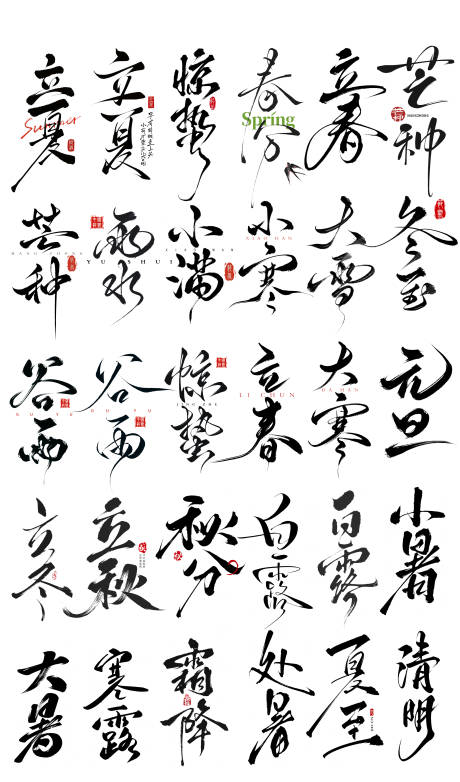 立夏
Summer
立夏
惊蛰
春分
Spring
立春
芒种
MANGZHONG
芒种
MANG ZHONG
雨水
YU SHUI
小满
XIAO MAN
小寒
XIAO HAN
大雪
冬至
谷雨
GU YU
谷雨
GU YU
惊蛰
JING ZHE
立春
LI CHUN
大寒
DA HAN
元旦
立冬
立秋
秋分
白露
白露
小暑
大暑
寒露
霜降
处暑
夏至
清明